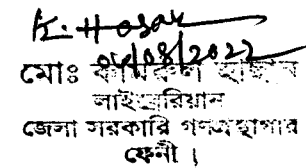 K. Hasan
04/08/2022
মোঃ কামরুল হাসান
লাইব্রেরিয়ান
জেলা সরকারি গণগ্রন্থাগার
ফেনী।